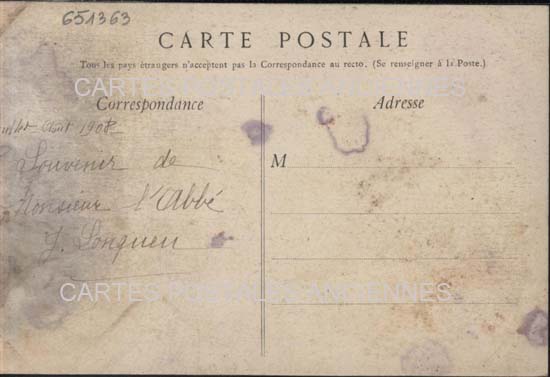 651363
CARTE POSTALE
Tous les pays étrangers n'acceptent pas la Correspondance au recto. (Se renseigner à la Poste.)
CARTES POSTALES ANCIENNES
Correspondance
Adresse
Août 1908
Souvenir de
M
Monsieur l'Abbé
J.
CARTES POSTALES ANCIENNES